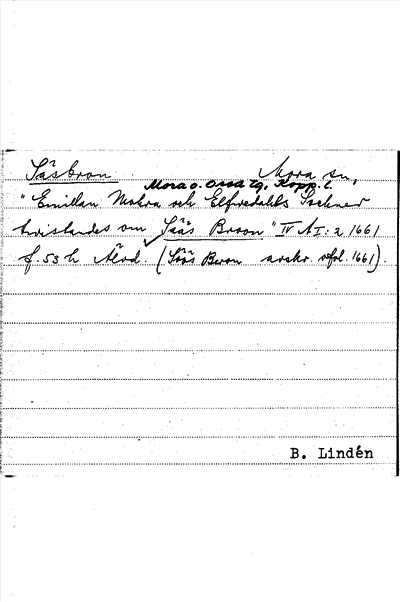 Säsbron Mora sn,
Mora o. Orsa tg, Kopp. l.
"Emillan Mohra och Elfwedahls Sochner
twistandes om Sääs Broon" IV A I: 2 1661
f. 53 h Älvd. (Sääs Broon avskr. vol. 1661).
B. Lindén